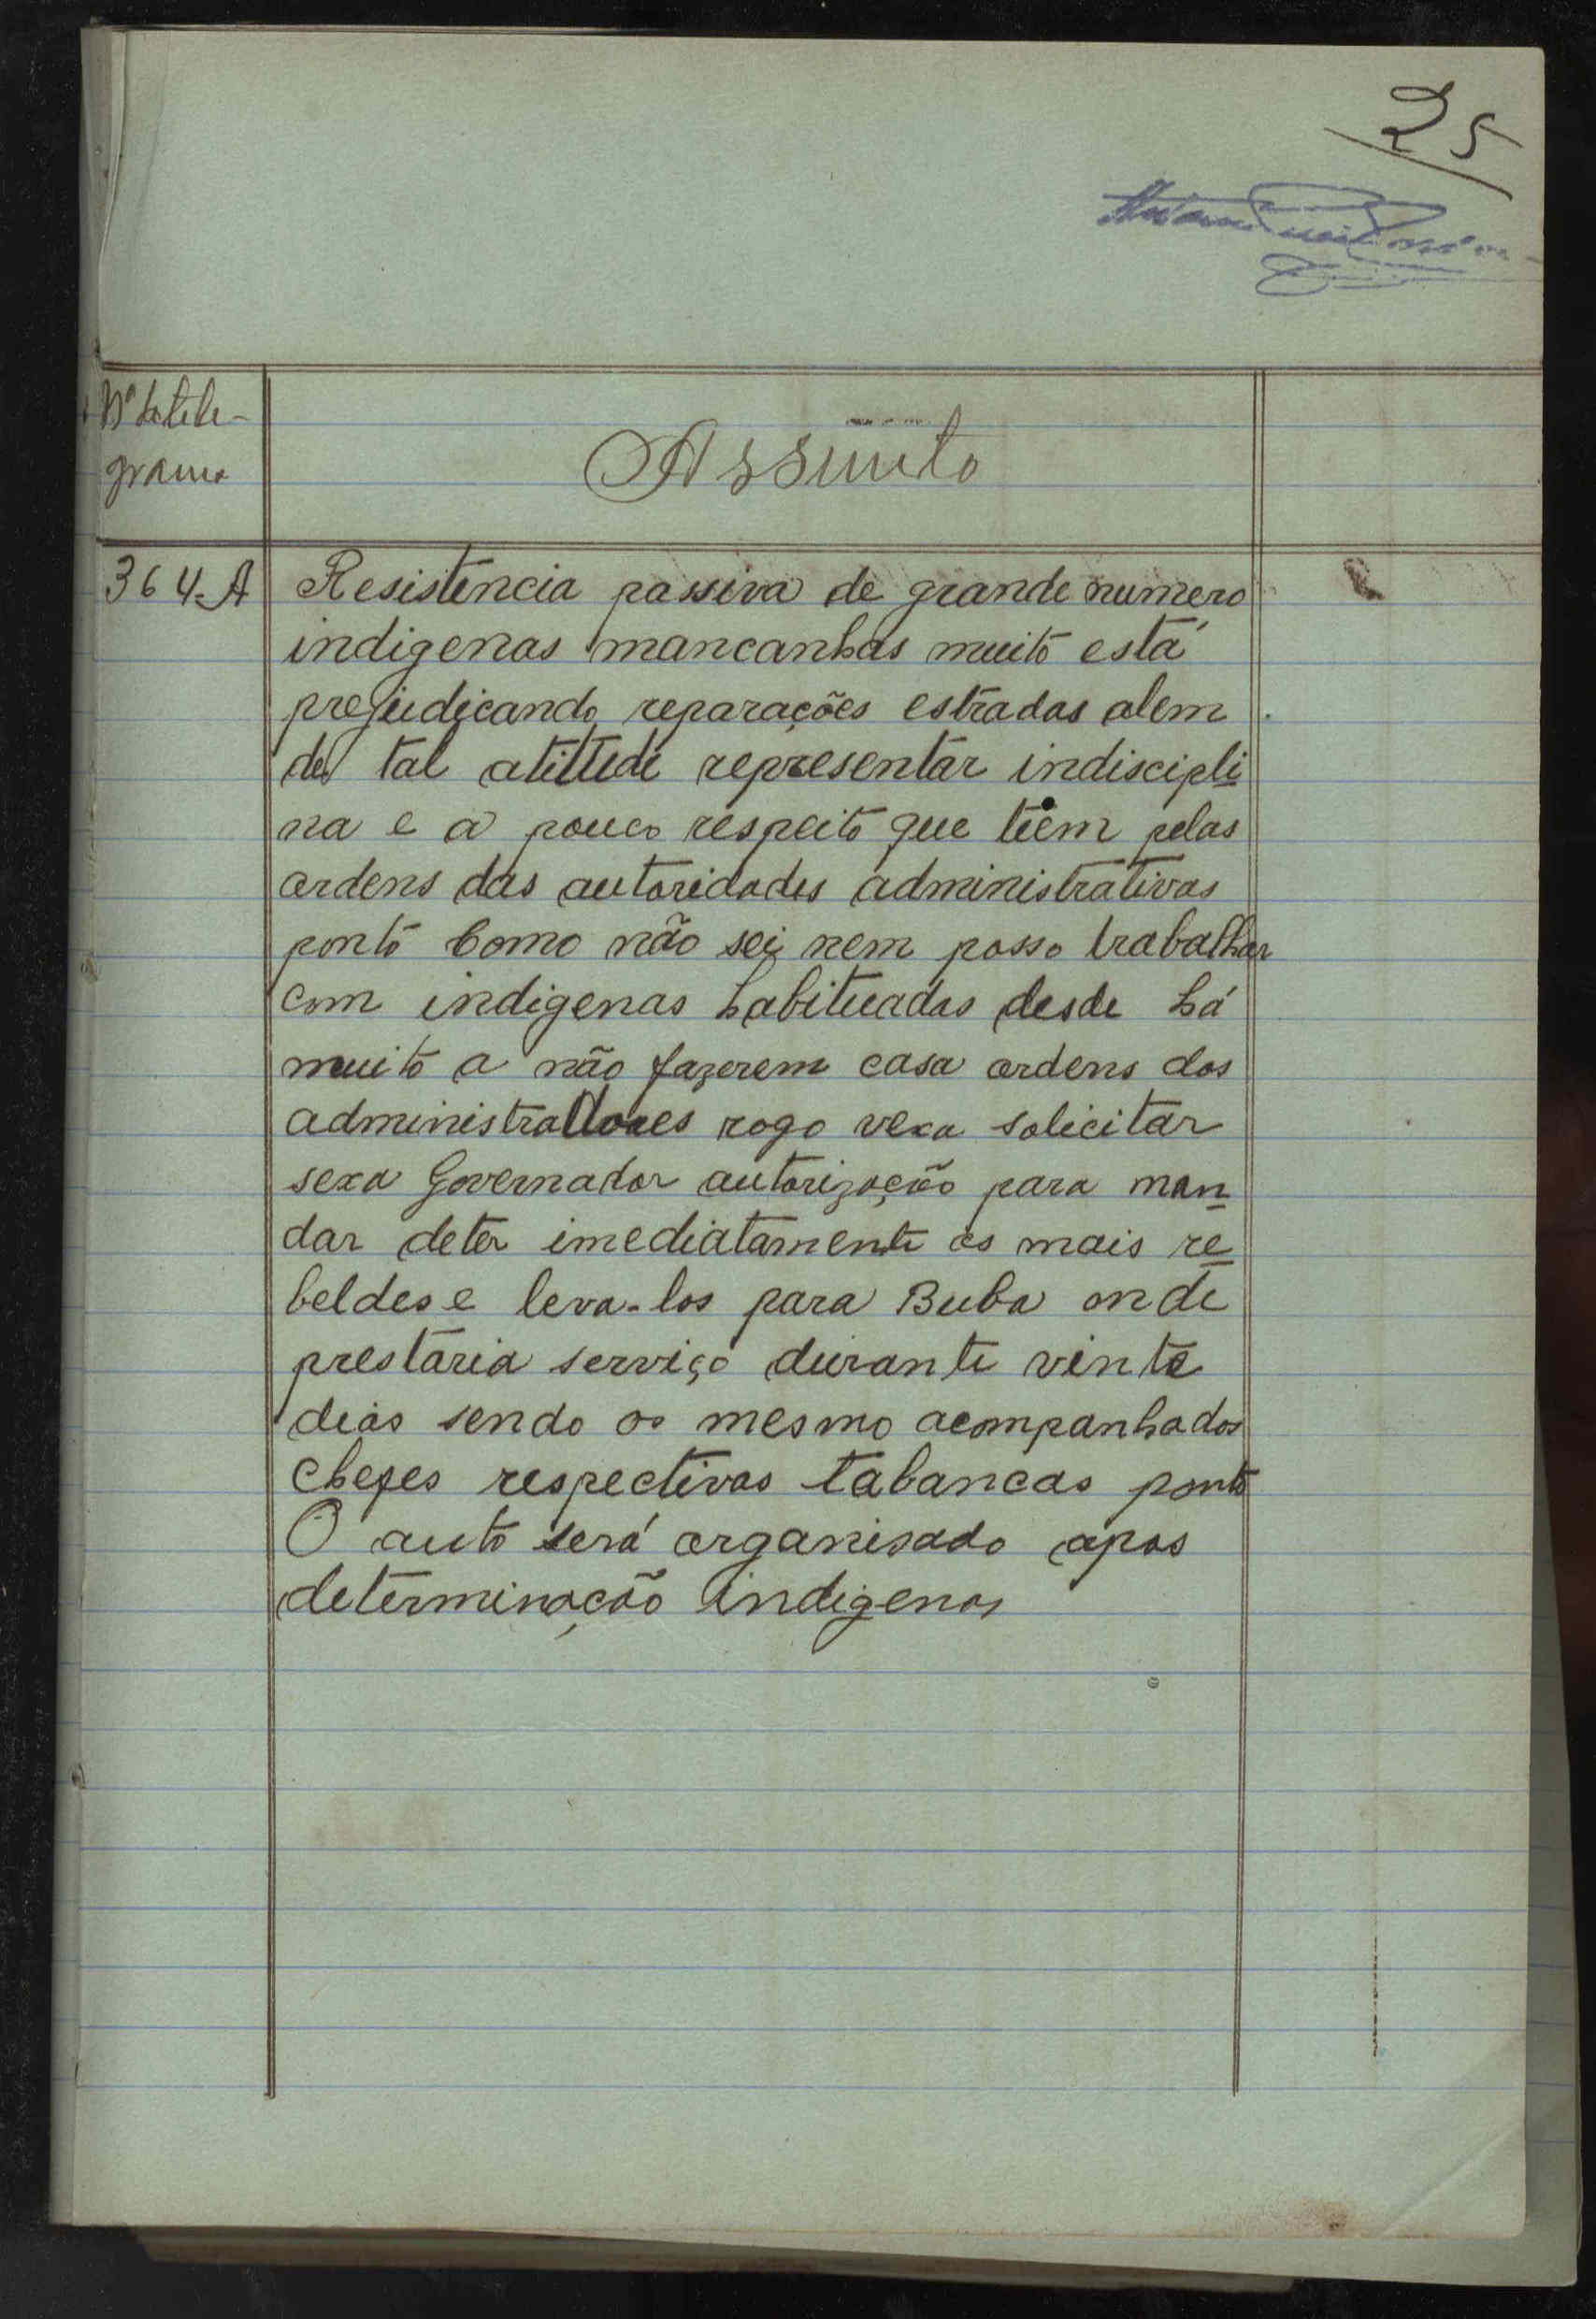 25
Nº de tele-
grama
Assunto
364-A
Resistencia passiva de grande numero
indigenas mancanhas muito está
prejudicando reparações estradas alem
de tal atittude representar indiscipli
na e o pouco respeito que têem pelas
ordens das autoridades administrativas
ponto Como não sei nem posso trabalhar
com indigenas habituados desde há
muito a não fazerem caso ordens dos
administradores rogo vexa solicitar
sexa Governador autorização para man
dar deter imediatamente os mais re
beldes e leva-los para Buba onde
prestaria serviço durante vinte
dias sendo os mesmo acompanhados
chefes respectivas tabancas ponto
O auto será organisado apos
determinação indigenas